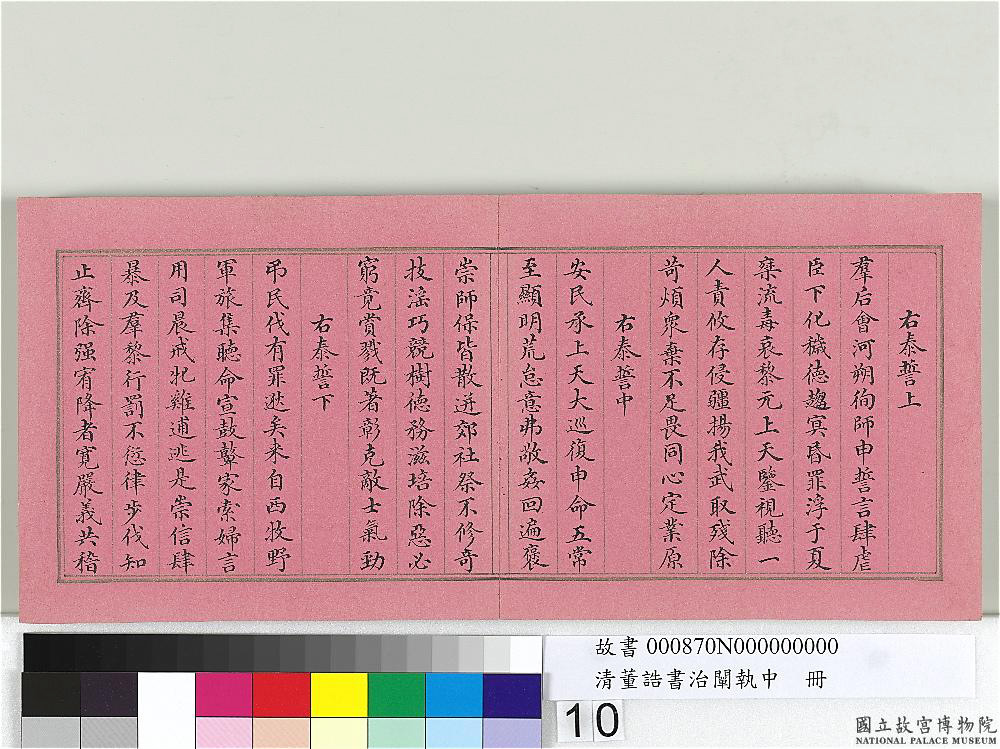 右泰誓上
羣后會河朔徇師申誓言肆虐
臣下化穢德趨冥昏罪浮于夏
棄流毒哀黎元上天鑒視聽一
人責攸存侵疆揚我武取殘除
苛煩衆棄不足畏同心定業原
右泰誓中
安民承上天大巡復申命五常
至顯明荒怠意弗敬姦回遍褒
崇師保皆散迸郊社祭不修奇
技淫巧競樹德務滋培除惡必
窮竟賞戮既著彰克敵士氣勁
右泰誓下
弔民伐有罪逖矣来自西牧野
軍旅集聽命宣鼓鼙家索婦言
用司晨戒牝雞逋逃是崇信肆
暴及羣黎行罰不愆律步伐知
止齊除强宥降者寛嚴義共稽
故書 000870N000000000
清董誥書治闡執中 冊
10
國立故宮博物院
NATIONAL PALACE MUSEUM